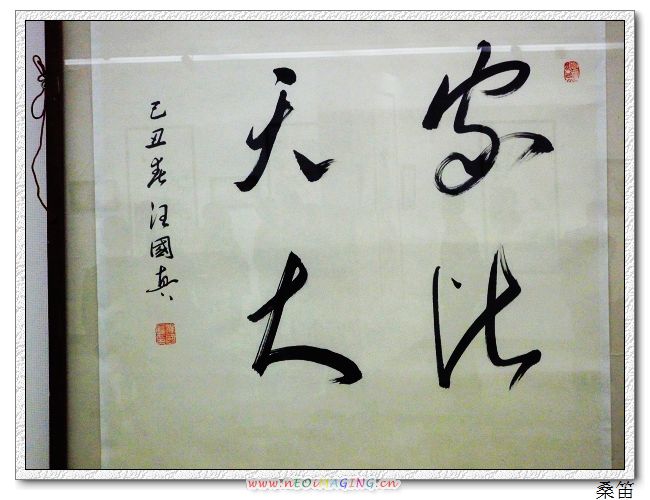 家比
天大
己丑春汪國真
www.nEOiMAGING.cn
桑笛